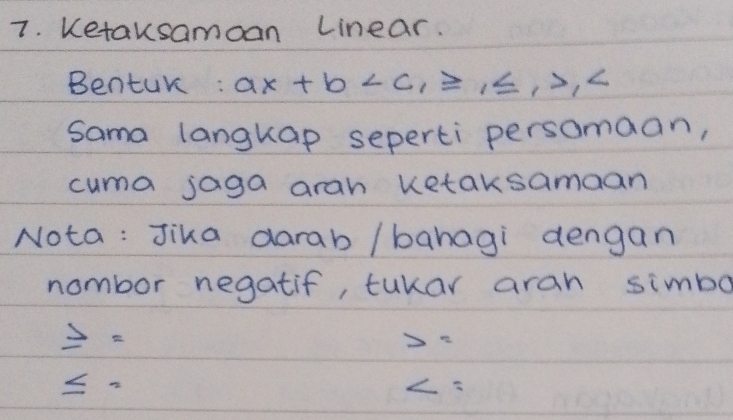 7. Ketaksamaan Linear.
Bentuk : ax + b < c, ≥, ≤, >, <
Sama langkap seperti persamaan,
cuma jaga arah ketaksamaan
Nota : Jika darab / bahagi dengan
nombor negatif, tukar arah simbo
≥ = > =
≤ = < =